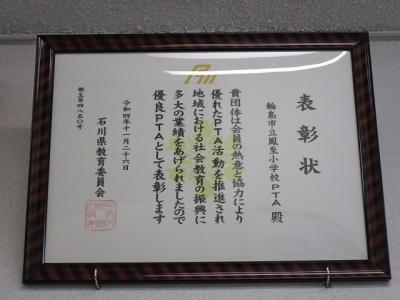 表彰状
輪島市立鳳至小学校PTA 殿
貴団体は会員の熱意と協力により
優れたPTA活動を推進され
地域における社会教育の振興に
多大の業績をあげられましたので
優良PTAとして表彰します
令和四年十一月二十六日
石川県教育委員会
教生第四八五〇号